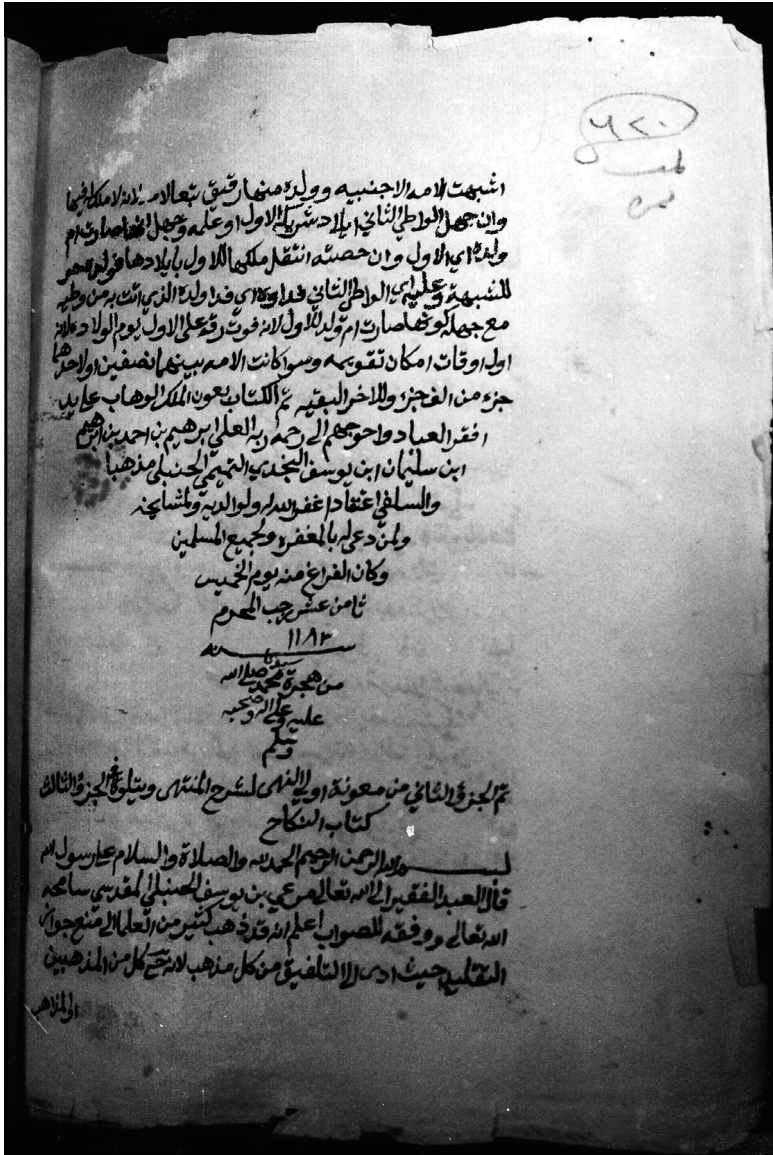 ٦٢٠
اشبهت الامه الاجنبيه وولده منها رقيق تبعا لامه لانه لا ملك له فيها
وان جهل الواطي الثاني ايلاد شريكه الاول او علمه وجهل انها صارت ام
ولده اي الاول وان حصته انتقل ملكها للاول بايلادها فولده حر
للشبهة وعليه اي الواطي الثاني فداوه اي فدا ولده الذي اتت به من وطيه
مع جهله كونها صارت ام ولد للاول لانه فوت رقه على الاول يوم الولاده لانه
اول اوقات امكان تقويمه وسوا كانت الامه بينهما نصفين او لاحدهما
جزء من الف جزء وللاخر البقيه تم الكتاب بعون الملك الوهاب على يد
افقر العباد واحوجهم الى رحمة ربه العلي ابرهيم بن احمد بن ابرهيم
ابن سليمان ابن يوسف النجدي التميمي الحنبلي مذهبا
والسلفي اعتقادا غفر الله له ولوالديه ولمشايخه
ولمن دعى له بالمغفره ولجميع المسلمين
وكان الفراغ منه يوم الخميس
ثامن عشر رجب المحرم
١١٨٣
سنه
من هجرة سيدنا محمد صلى الله
عليه وعلى اله وصحبه
وسلم
تم الجزؤ الثاني من معونة اولي النهى لشرح المنتهى ويتلوه في الجزؤ الثالث
كتاب النكاح
بسم الله الرحمن الرحيم الحمد لله والصلاة والسلام على رسول الله
قال العبد الفقير الى الله تعالى مرعي بن يوسف الحنبلي المقدسي سامحه
الله تعالى ووفقه للصواب اعلم انه قد ذهب كثير من العلما الى منع جواز
التقليد حيث ادى الى التلفيق من كل مذهب لانه ح كل من المذهبين
او المذاهب